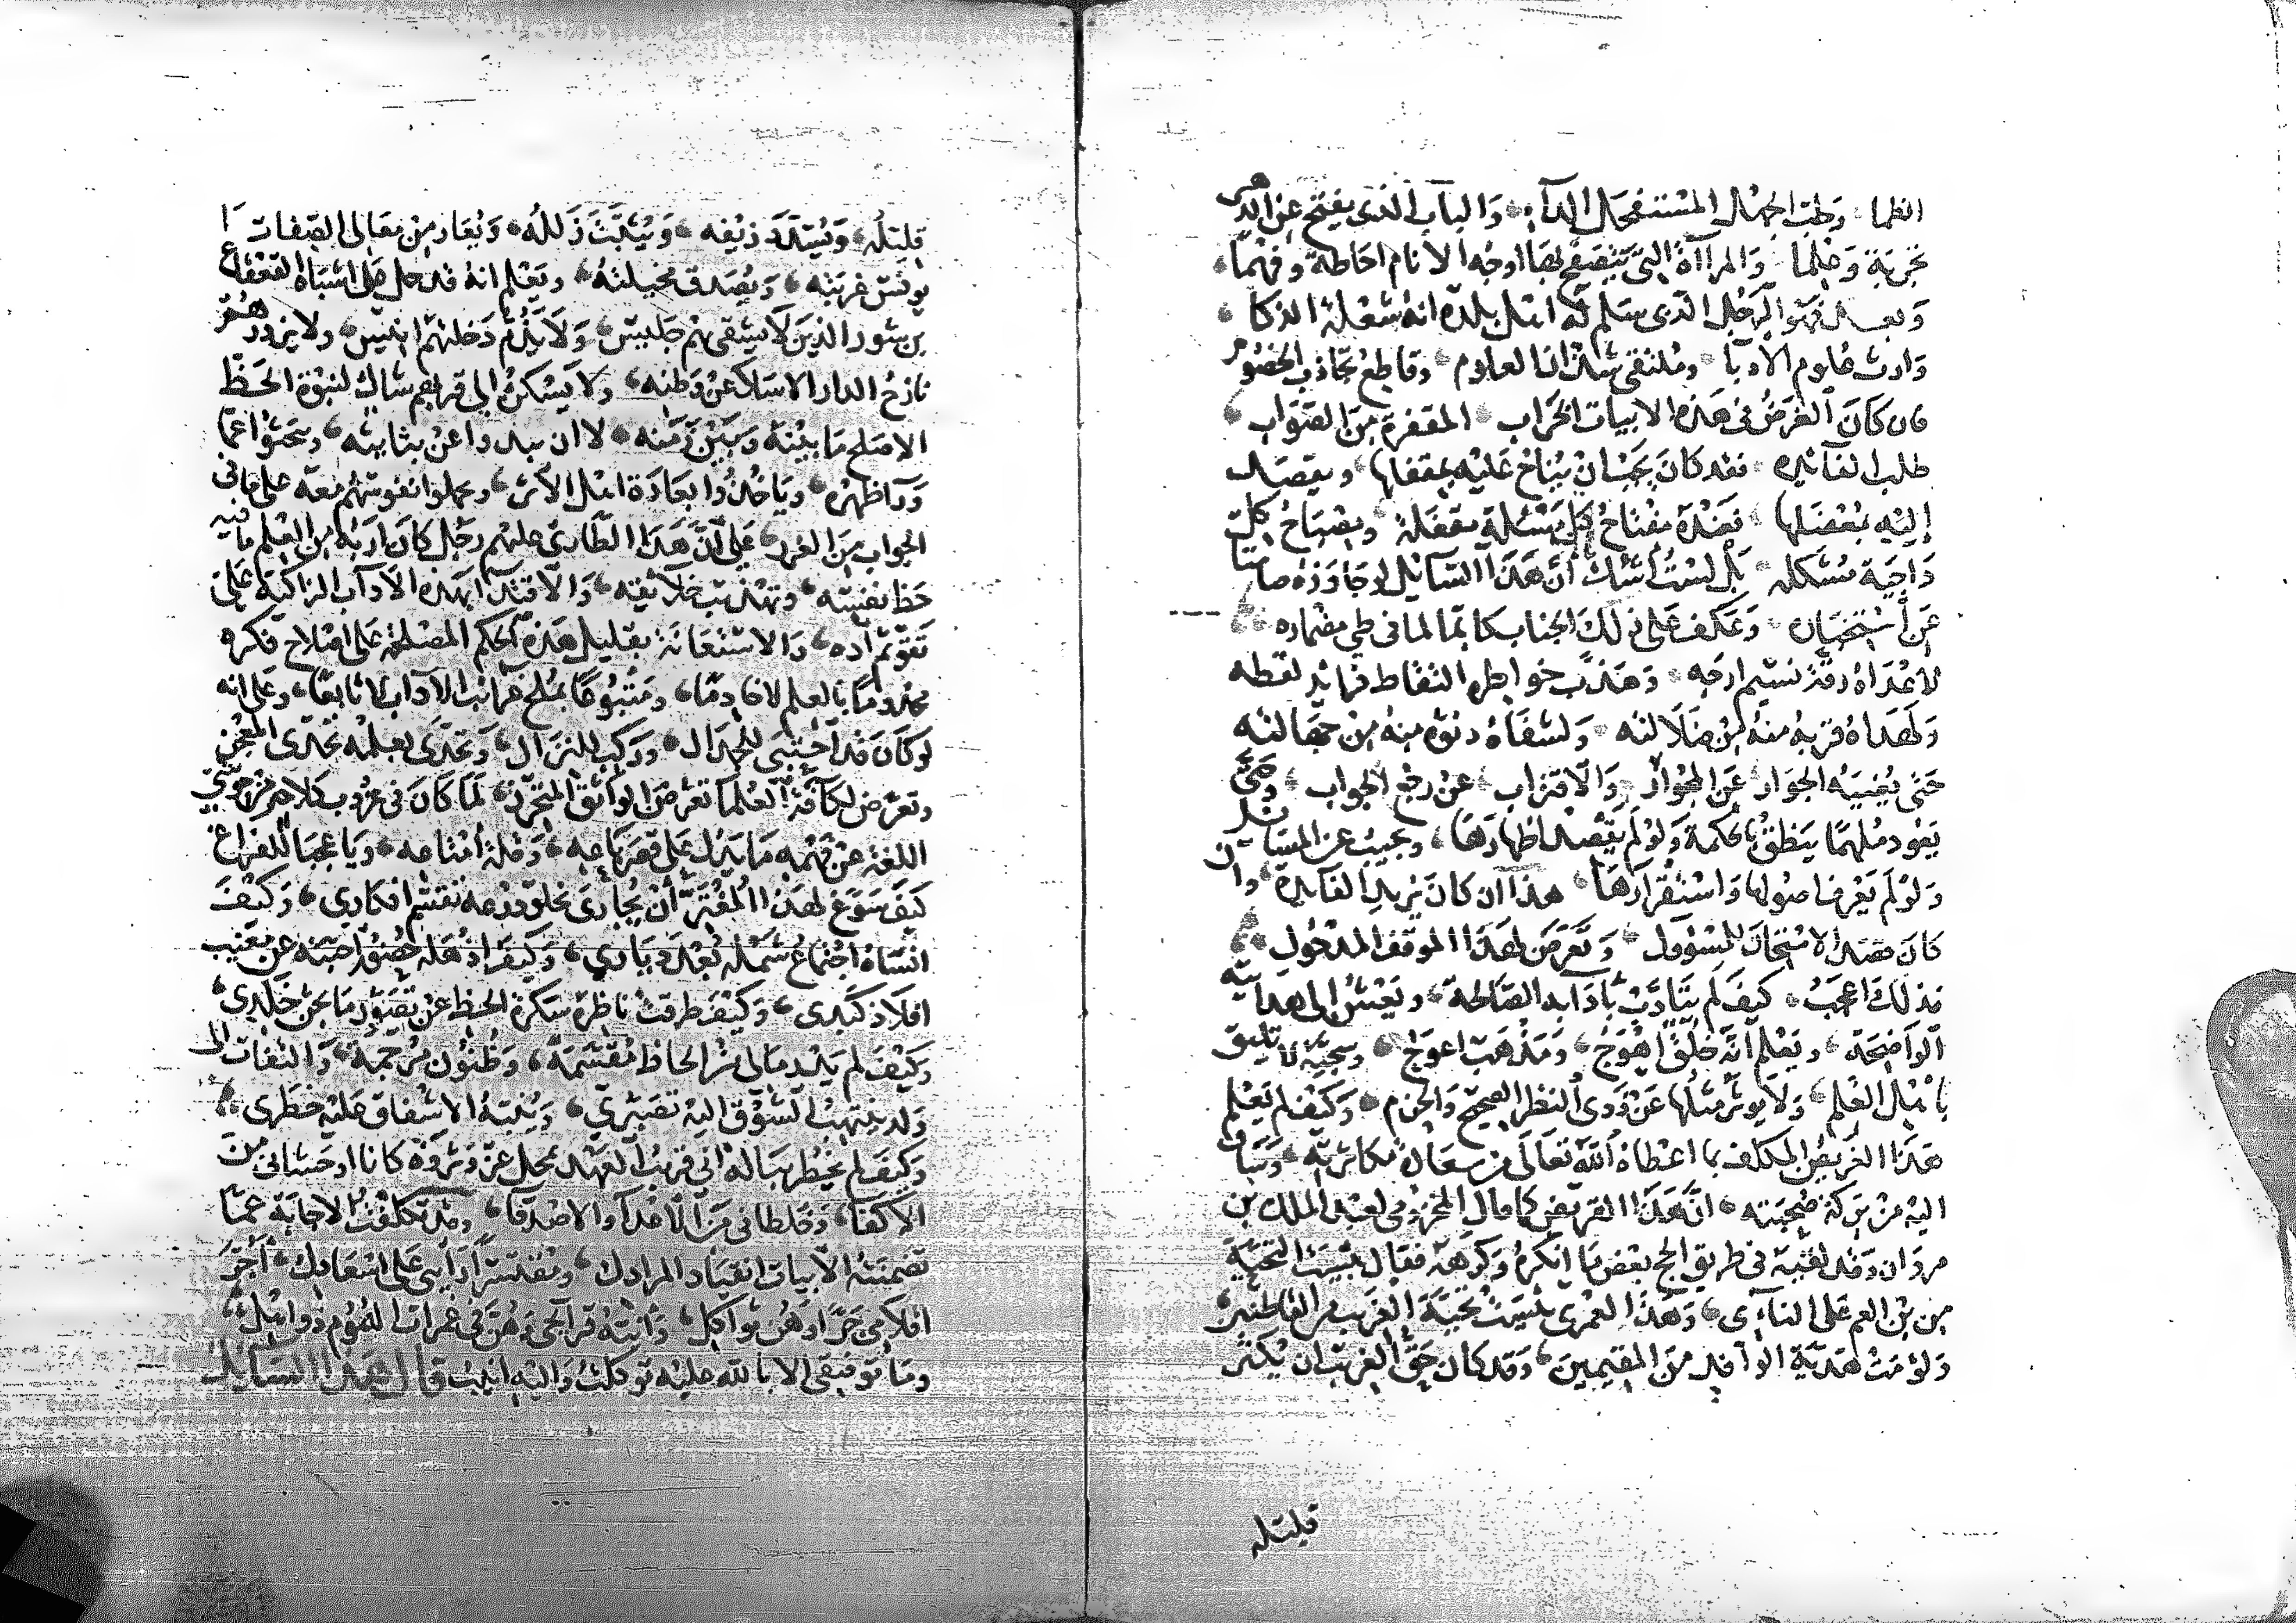 العلما وطب الجهال المستفحل الدآء والباب الذى يفتح عن الدهر
تجربة وعلما والمرآة التى تتصفح بها اوجه الانام احاطة وفهما
وبعد فهو الرجل الذى سلم له اهل بلده انه شعلة الذكا
وارث علوم الادبا وملتقى العلوم وقاطع تجاذب الخصوم
فان كان الغرض فى هذه الابيات الخراب المقفرة من الصواب
طلب الفائده فقد كان يجب ان يناخ عليه بمقفلها ويقصد
اليه بمعضلها فعنده مفتاح كل مسئلة مقفلة ومصباح كل
داجية مشكله بل لست اشك ان هذا السائل لو جاوزه صامتا
عن استخبار وعكف على ذلك الجناب كاتما لما فى طي مضماره
لاعداه رقة نسيم ارجه وهذب خواطره التقاط فرائد لفظه
ولهداه قربه منه من ضلالته ولشفاه دنوه منه من جهالته
حتى يغنيه الجوار عن الحوار والاقتراب عن رجع الجواب وحتى
يعود ملهما ينطق بالحكمة ولو لم يقصد اظهارها ويجيب عن المسائل
ولو لم يعرف اصولها واستقرارها هذا ان كان يريد الفايدة وان
كان قصد الامتحان للمسؤول وتعرض لهذا الموقف المدخول
فذلك اعجب كيف لم يتادب بآدابه الصالحة ويعش الى هدايته
الواضحة ويعلم انه خلق اهوج ومذهب اعوج وسجية لا تليق
باهل العلم ولا يوثر مثلها عن ذوى النظر الصحيح والحزم وكيف لم يعلم
هذا القريض المكلف بما اعطاه الله تعالى من سعادة مكاثرته وساق
اليه من بركة صحبته ان هذا القريض كما قال المخزومى لعبد الملك بن
مروان وقد لقيه فى طريق الحج ببعض ما انكره وكرهه فقال بئست التحية
من بن العم على الناءى وهذا لعمرى بئست تحية الغريب من القاطنين
ولؤمت هدية الوافد من المقيمين وقد كان حق الغريب ان يكثر
قليله
قليله ويسدد زيفه ويثبت زلله ويعار من معالى الصفات ما
يونس غربته ويصدق مخيلته ويعلم انه قد حل على اشباه القعقاع
بن شور الذين لا يشقى بهم جليس ولا يذم دخلتهم انيس ولا يزورهم
نازح الدار الا سلا عن وطنه ولا يسكن الى قربهم شاك لنبوة الحظ
الا صلح ما بينه وبين زمنه لا ان يبدوا عن مثابته ويبحثوا عما
ورآ ظهره وياخذوا بعادة اهل الاثر ويحملوا نفوسهم معه على ما فى
الجواب من الغرر على ان هذا الطارى عليهم رجل كان اربه من العلم ما فيه
حظ نفسه وتهذيب خلائقه والاقتدآ بهذه الآداب الزاكية على
تقويم اده والاستعانة بقليل هذه الحكم المصلحة على اصلاح فكره
مخدوما بالعلم لا خادما ومتبوعا بملح غرائب الآداب لا تابعا وعلى انه
لو كان قد احتبى للجدال وركب للنزال وتحدى بعلمه تحدى المعجز
وتعرض لكافة العلما تعرض الواثق المتحرز لما كان فى عزوب كلام من حوشي
اللغة عن فهمه ما يدل على قصر باعه وقلة امتاعه ويا عجبا للفراغ
كيف سوغ لهذا المقترح ان يجارى بخلو ذرعه تقسم افكاري وكيف
انساه اجتماع شمله بعد ديارى وكيف اذهله حضور احبته عن مغيب
افلاذ كبدى وكيف طرقت ناظره سكرة الحظ عن تصور ما يجن خلدى
وكيف لم يدر مالى من الحاظ مقسمة وظنون مرجمة والتفات الى
ولد ينتهب الشوق اليه تصبري ويلبيه الاشفاق عليه خطرى
وكيف لم يخطر بباله انى قريب العهد بمحل عز وثروة كانا اوحشانى من
الاكفا وخلطانى من الاعدآ والاصدقا وقد تكلفت الاجابة عما
تضمنته الابيات انقياد المرادك ومقتسرا رأيى على اسعادك اجر
اقلامى جرا وهن نواكل وانبه قرائحى وهن فى غمرات الهموم ذواهل
وما توفيقى الا بالله عليه توكلت واليه انيب قال هذا السائل